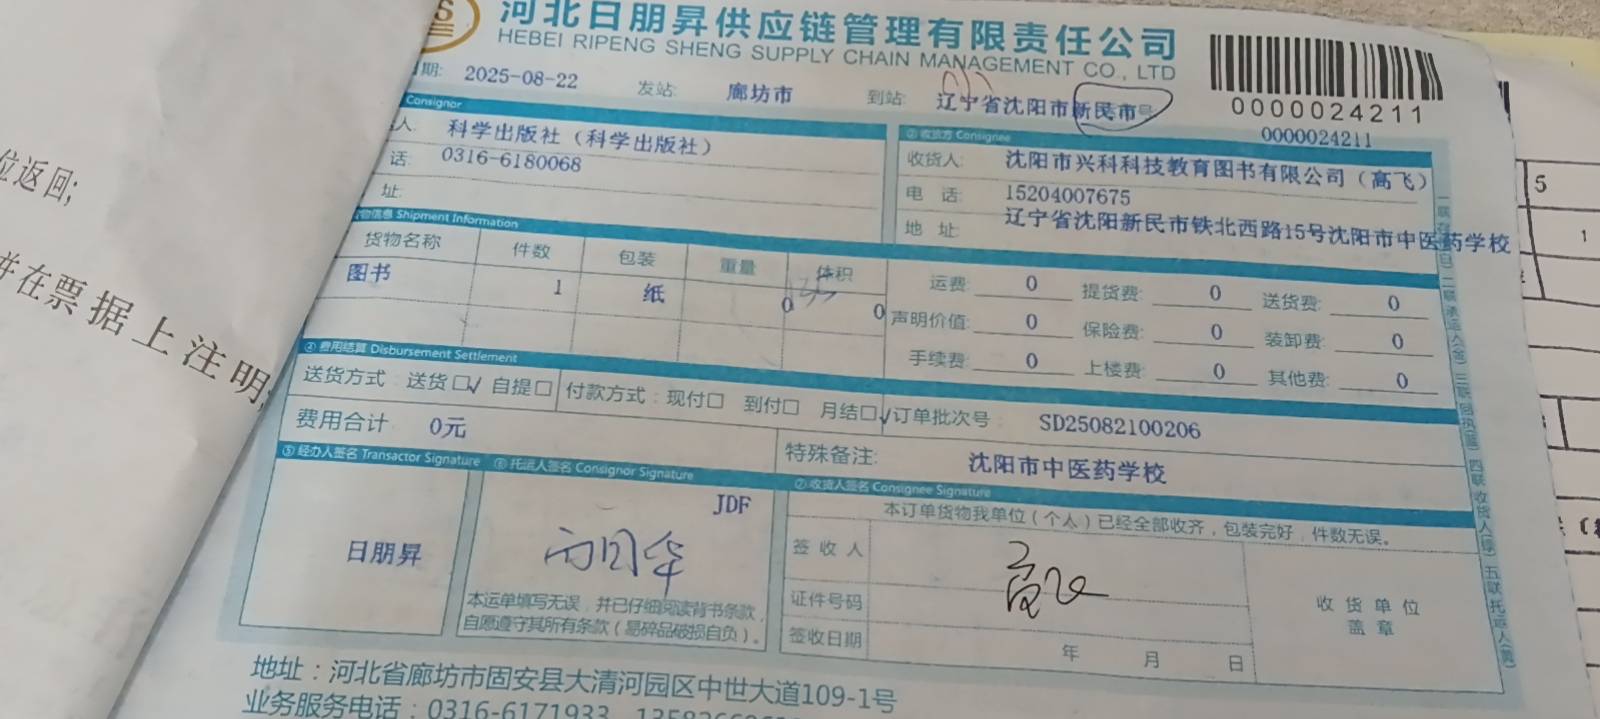 河北日朋昇供应链管理有限责任公司
HEBEI RIPENG SHENG SUPPLY CHAIN MANAGEMENT CO., LTD
期: 2025-08-22 发站: 廊坊市 到站: 辽宁省沈阳市新民市号
0000024211
0000024211
Consignor
人: 科学出版社（科学出版社）
话: 0316-6180068
址:
② 收货方 Consignee
收货人: 沈阳市兴科科技教育图书有限公司（高飞）
电 话: 15204007675
地 址: 辽宁省沈阳新民市铁北西路15号沈阳市中医药学校
货物信息 Shipment Information
货物名称 件数 包装 重量 体积
图书 1 纸 0 0
运费: 0 提货费: 0 送货费: 0
声明价值: 0 保险费: 0 装卸费: 0
手续费: 0 上楼费: 0 其他费: 0
④ 费用结算 Disbursement Settlement
送货方式: 送货□√ 自提□ 付款方式: 现付□ 到付□ 月结□√ 订单批次号: SD25082100206
费用合计 0元 特殊备注: 沈阳市中医药学校
⑤ 经办人签名 Transactor Signature
日朋昇
⑥ 托运人签名 Consignor Signature
JDF
本运单填写无误，并已仔细阅读背书条款，
自愿遵守其所有条款（易碎品破损自负）。
⑦ 收货人签名 Consignee Signature
本订单货物我单位（个人）已经全部收齐，包装完好，件数无误。
签 收 人 高飞
证件号码
签收日期 年 月 日
收 货 单 位
盖 章
地址：河北省廊坊市固安县大清河园区中世大道109-1号
业务服务电话：0316-6171933
位返回;
并在票据上注明;
5
1